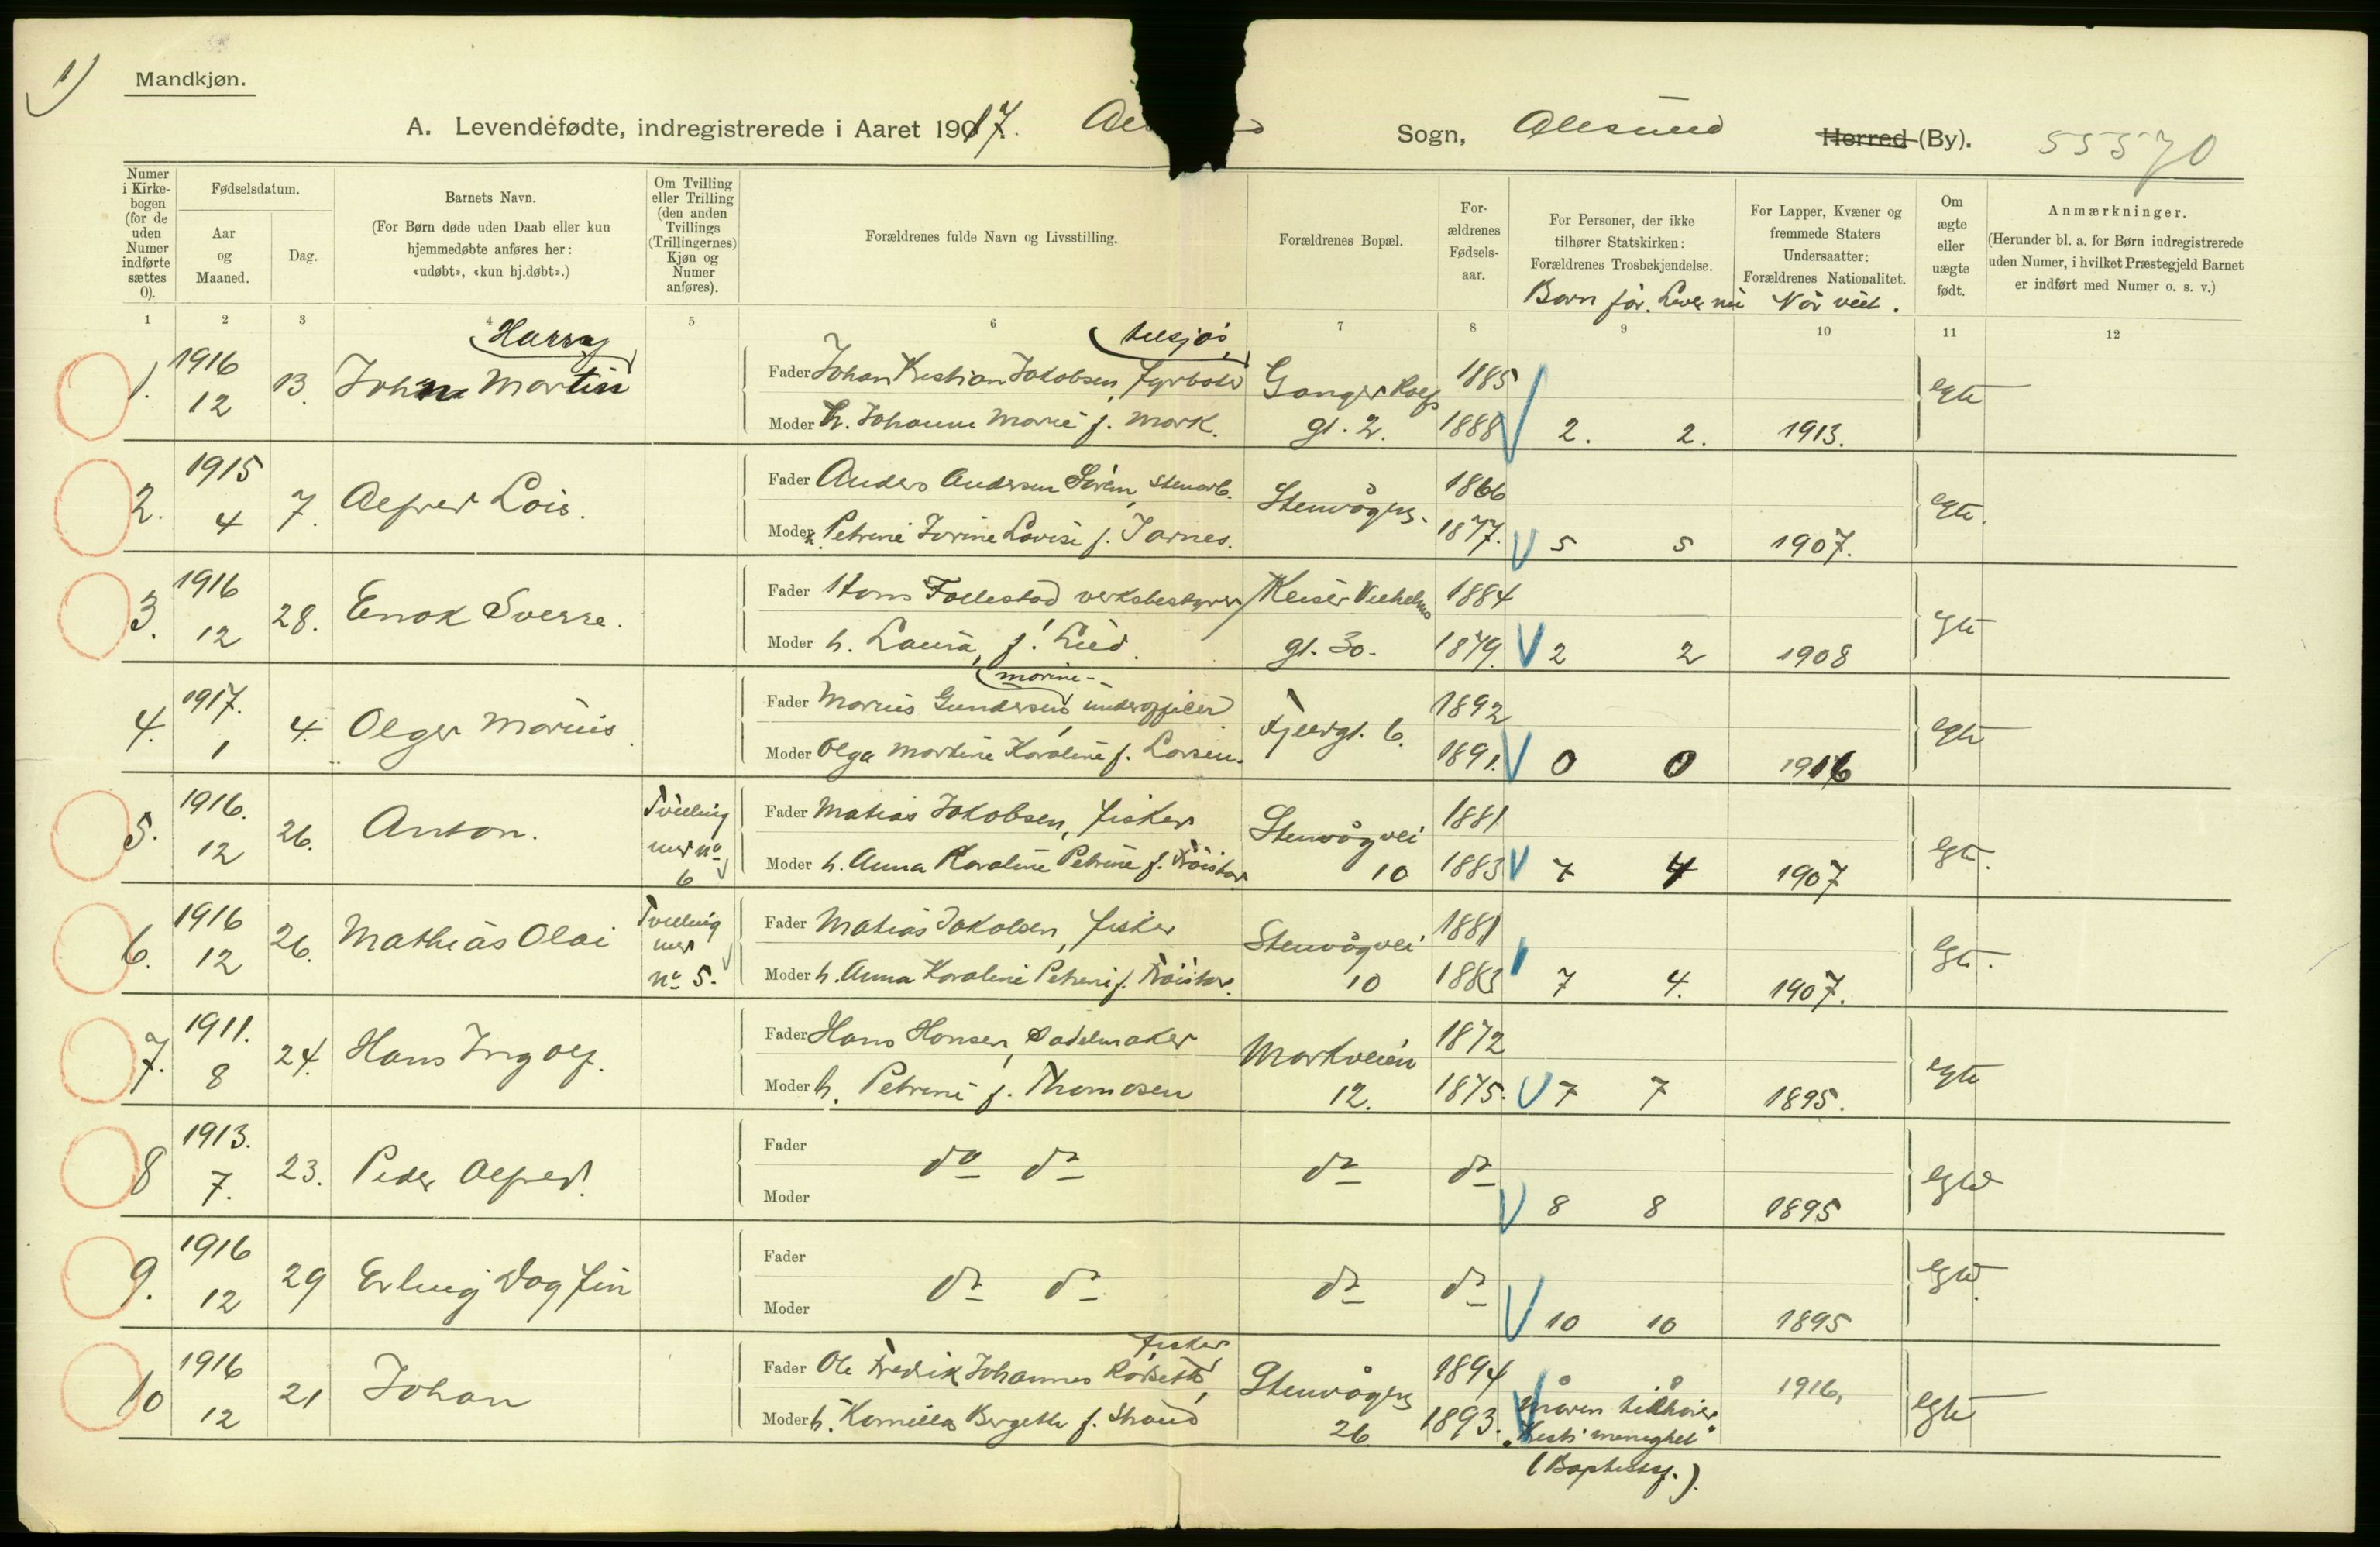 1)
Mandkjøn.
A. Levendefødte, indregistrerede i Aaret 1917. Sogn, Alesund Herred (By). 55570
Numer i Kirkebogen (for de uden Numer indførte sættes 0).
Fødselsdatum.
Aar og Maaned.
Dag.
Barnets Navn.
(For Børn døde uden Daab eller kun hjemmedøbte anføres her: «udøbt», «kun hj.døbt».)
Om Tvilling eller Trilling (den anden Tvillings (Trillingernes) Kjøn og Numer anføres).
Forældrenes fulde Navn og Livsstilling.
Forældrenes Bopæl.
Forældrenes Fødselsaar.
For Personer, der ikke tilhører Statskirken: Forældrenes Trosbekjendelse.
For Lapper, Kvæner og fremmede Staters Undersaatter: Forældrenes Nationalitet.
Om ægte eller uægte født.
Anmærkninger.
(Herunder bl. a. for Børn indregistrerede uden Numer, i hvilket Præstegjeld Barnet er indført med Numer o. s. v.)
Barn før. Lever nu Når viet.
1 2 3 4 5 6 7 8 9 10 11 12
1. 1916 12 13. Johan Harry Martin
Fader Johan Kristian Jakobsen, fyrbøter 1885
Moder h. Johanne Marie f. Mork. Ganger Rolfs gt. 2. 1888 2. 2. 1913. egte
2. 1915 4 7. Alfred Lois.
Fader Anders Andersen stenarb. Stenvågvg. 1866
Moder h. Petrine Jorine Lovise f. Jarnes. 1877. 5 5 1907. egte.
3. 1916 12 28. Enok Sverre.
Fader Hans Follestad verksbestyrer Keiser Vilhelms 1884
Moder h. Laura, f. Lied. gt. 30. 1879. 2 2 1908 egte
4. 1917. 1 4. Olger Marius.
Fader Marius Gundersen, marine-underofficer Fjeldgt. 6. 1892
Moder Olga Martine Karoline f. Larsen. 1891. 0 0 1916 egte
5. 1916. 12 26. Anton. Tvilling med no 6
Fader Matias Jakobsen, fisker Stenvågvei 1881
Moder h. Anna Karoline Petrine f. 10 1883 7 4 1907 egte.
6. 1916 12 26. Mathias Olai Tvilling med no 5.
Fader Matias Jakobsen, fisker Stenvågvei 1881
Moder h. Anna Karoline Petrine f. 10 1883 7 4. 1907. egte.
7. 1911. 8 24. Hans Ingolf.
Fader Hans Hansen, sadelmaker Markveien 1872
Moder h. Petrine f. Thomasen 12. 1875. 7 7 1895. egte
8 1913. 7. 23. Peder Alfred.
Fader do do do do
Moder 8 8 1895 egte
9. 1916 12 29 Erling Dagfin
Fader do do do do
Moder 10 10 1895 egte.
10 1916 12 21 Johan
Fader Ole Fredrik Johannes Rørseth, fisker Stenvågvg 1894 1916,
Moder h. Kornilia Bergethe f. Strand 26 1893. Moren tilhører "Kristi menighet" egte
(Baptistsf.).